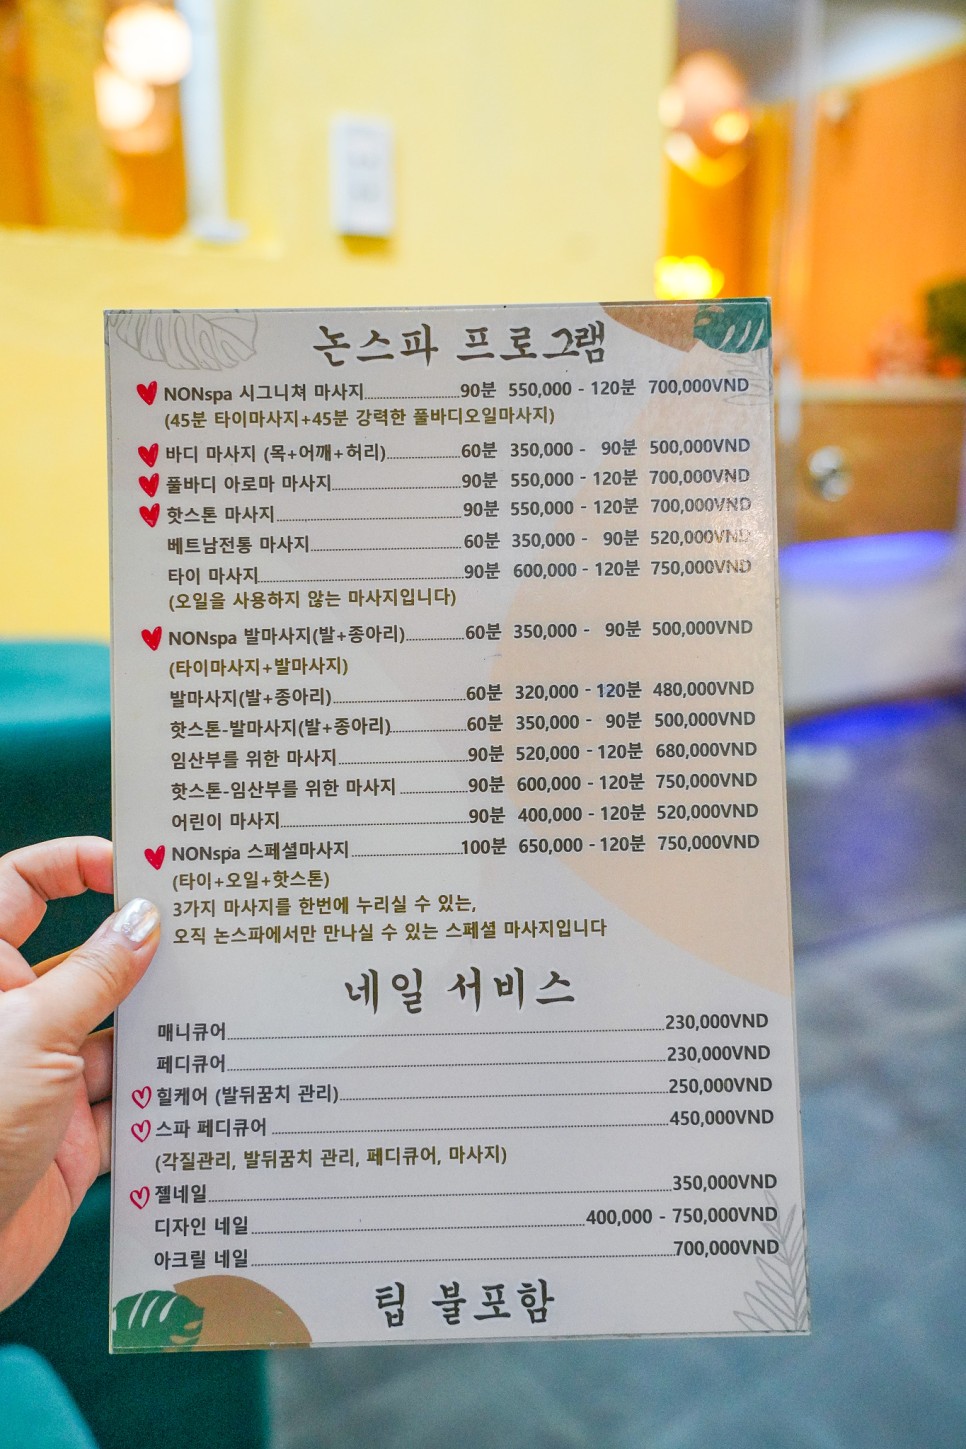 논스파 프로그램
NONspa 시그니쳐 마사지 90분 550,000 - 120분 700,000VND
(45분 타이마사지+45분 강력한 풀바디오일마사지)
바디 마사지 (목+어깨+허리) 60분 350,000 - 90분 500,000VND
풀바디 아로마 마사지 90분 550,000 - 120분 700,000VND
핫스톤 마사지 90분 550,000 - 120분 700,000VND
베트남전통 마사지 60분 350,000 - 90분 520,000VND
타이 마사지 90분 600,000 - 120분 750,000VND
(오일을 사용하지 않는 마사지입니다)
NONspa 발마사지(발+종아리) 60분 350,000 - 90분 500,000VND
(타이마사지+발마사지)
발마사지(발+종아리) 60분 320,000 - 120분 480,000VND
핫스톤-발마사지(발+종아리) 60분 350,000 - 90분 500,000VND
임산부를 위한 마사지 90분 520,000 - 120분 680,000VND
핫스톤-임산부를 위한 마사지 90분 600,000 - 120분 750,000VND
어린이 마사지 90분 400,000 - 120분 520,000VND
NONspa 스페셜마사지 100분 650,000 - 120분 750,000VND
(타이+오일+핫스톤)
3가지 마사지를 한번에 누리실 수 있는,
오직 논스파에서만 만나실 수 있는 스페셜 마사지입니다
네일 서비스
매니큐어 230,000VND
페디큐어 230,000VND
힐케어 (발뒤꿈치 관리) 250,000VND
스파 페디큐어 450,000VND
(각질관리, 발뒤꿈치 관리, 페디큐어, 마사지)
젤네일 350,000VND
디자인 네일 400,000 - 750,000VND
아크릴 네일 700,000VND
팁 불포함